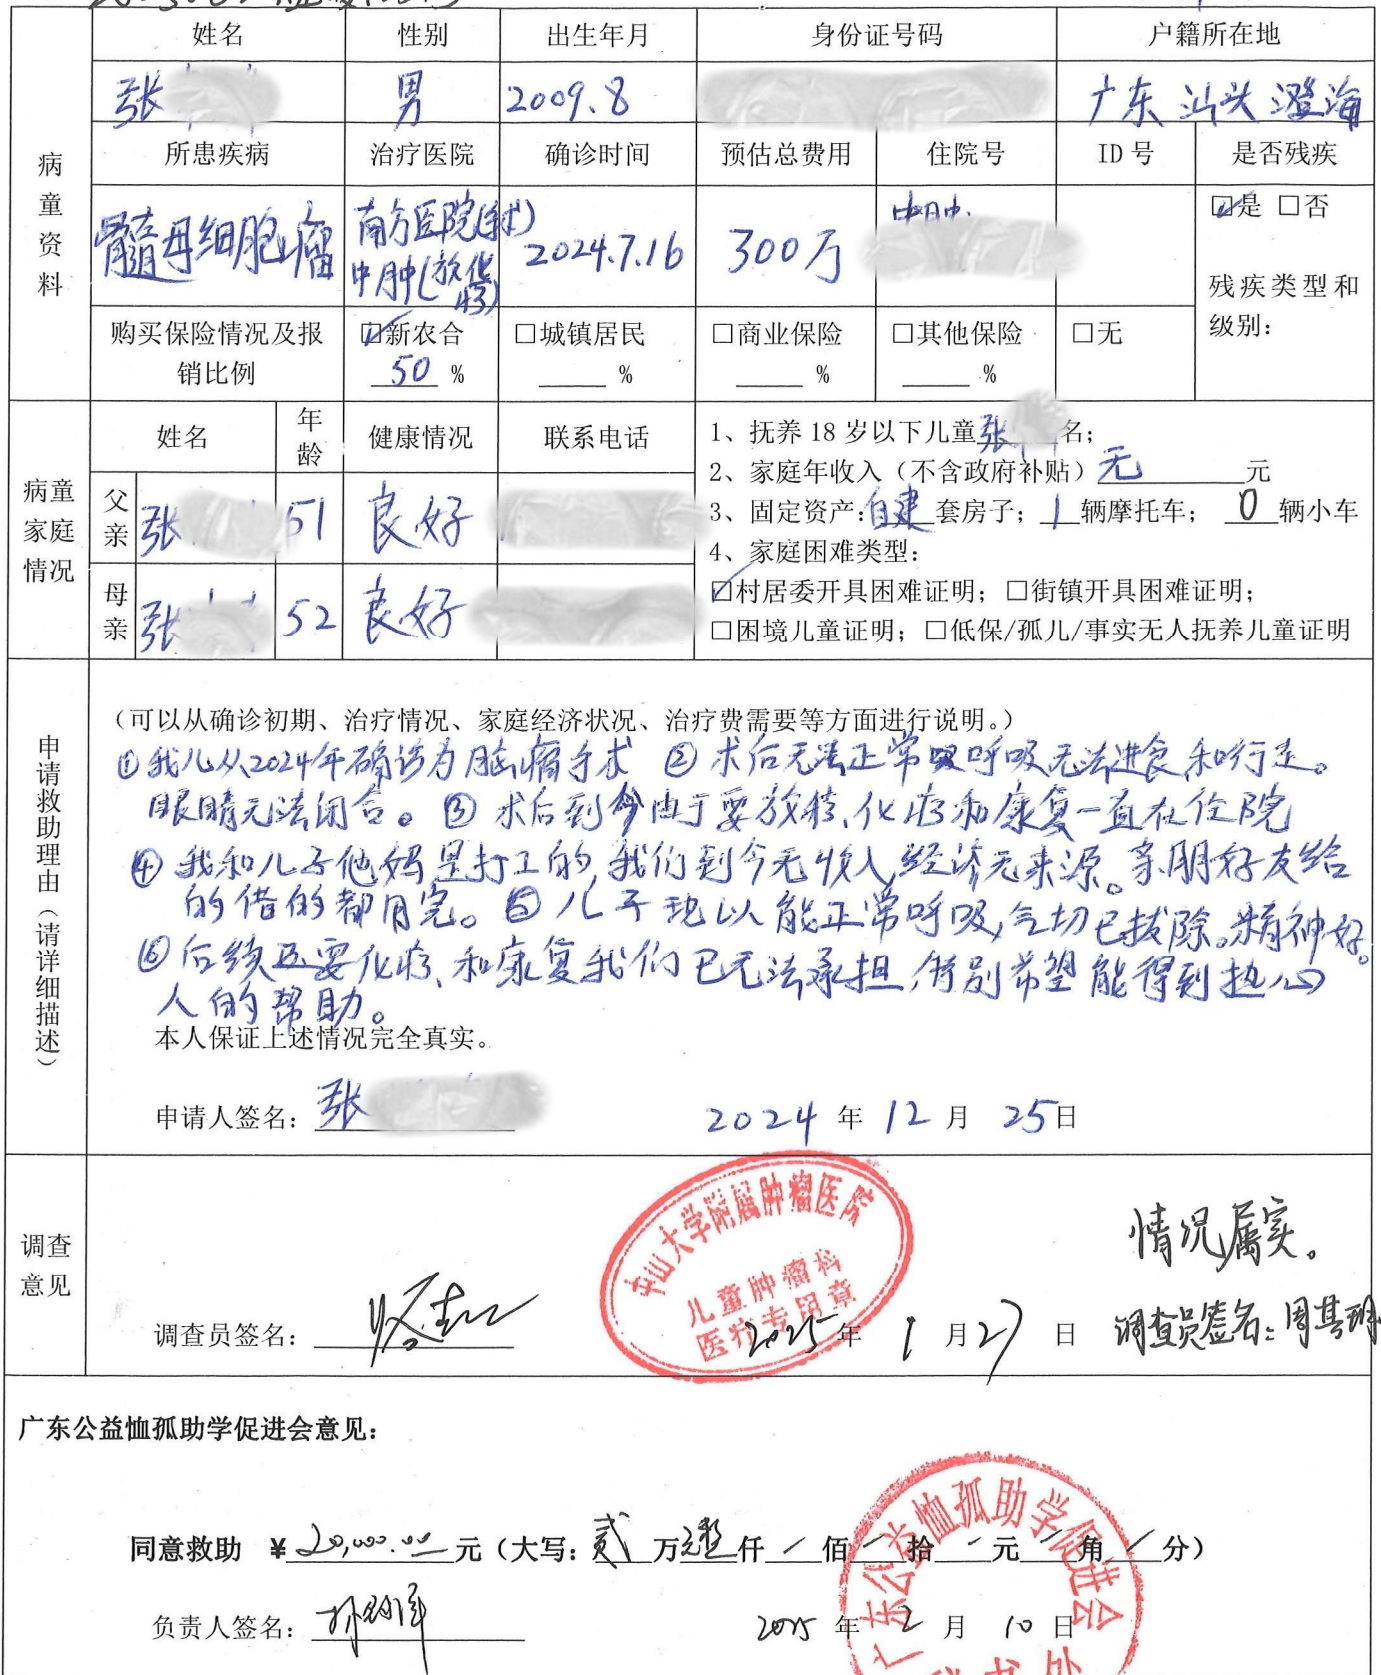 姓名 性别 出生年月 身份证号码 户籍所在地
张 男 2009.8 广东 汕头 澄海
病童资料
所患疾病 治疗医院 确诊时间 预估总费用 住院号 ID 号 是否残疾
髓母细胞瘤 南方医院(手术) 2024.7.16 300万 中肿. ☑是 □否
中肿(放化疗)
残疾类型和级别:
购买保险情况及报销比例 ☑新农合 □城镇居民 □商业保险 □其他保险 □无
50 % % % %
病童家庭情况
姓名 年龄 健康情况 联系电话
父亲 张 51 良好
母亲 张 52 良好
1、抚养 18 岁以下儿童张 名;
2、家庭年收入(不含政府补贴)无 元
3、固定资产:自建套房子; 1 辆摩托车; 0 辆小车
4、家庭困难类型:
☑村居委开具困难证明; □街镇开具困难证明;
□困境儿童证明; □低保/孤儿/事实无人抚养儿童证明
申请救助理由(请详细描述)
(可以从确诊初期、治疗情况、家庭经济状况、治疗费需要等方面进行说明。)
①我儿从2024年确诊为脑瘤手术 ②术后无法正常呼吸无法进食和行走。
眼睛无法闭合。③术后到今由于要放疗、化疗和康复一直在住院
④我和儿子他妈是打工的,我们到今无收入,经济无来源。亲朋好友给
的借的都用完。⑤儿子现以能正常呼吸,气切已拔除。精神好。
⑥后续还要化疗、和康复我们已无法承担,特别希望能得到热心
人的帮助。
本人保证上述情况完全真实。
申请人签名: 张 2024 年 12 月 25日
调查意见
中山大学附属肿瘤医院
儿童肿瘤科
医疗专用章
情况属实。
调查员签名: 2025 年 1 月 27 日
调查员签名:周其
广东公益恤孤助学促进会意见:
同意救助 ¥20,000.00元(大写: 贰 万元整仟 / 佰 / 拾 / 元 / 角 / 分)
负责人签名: 2025 年 2 月 10 日
广东公益恤孤助学促进会
秘书处